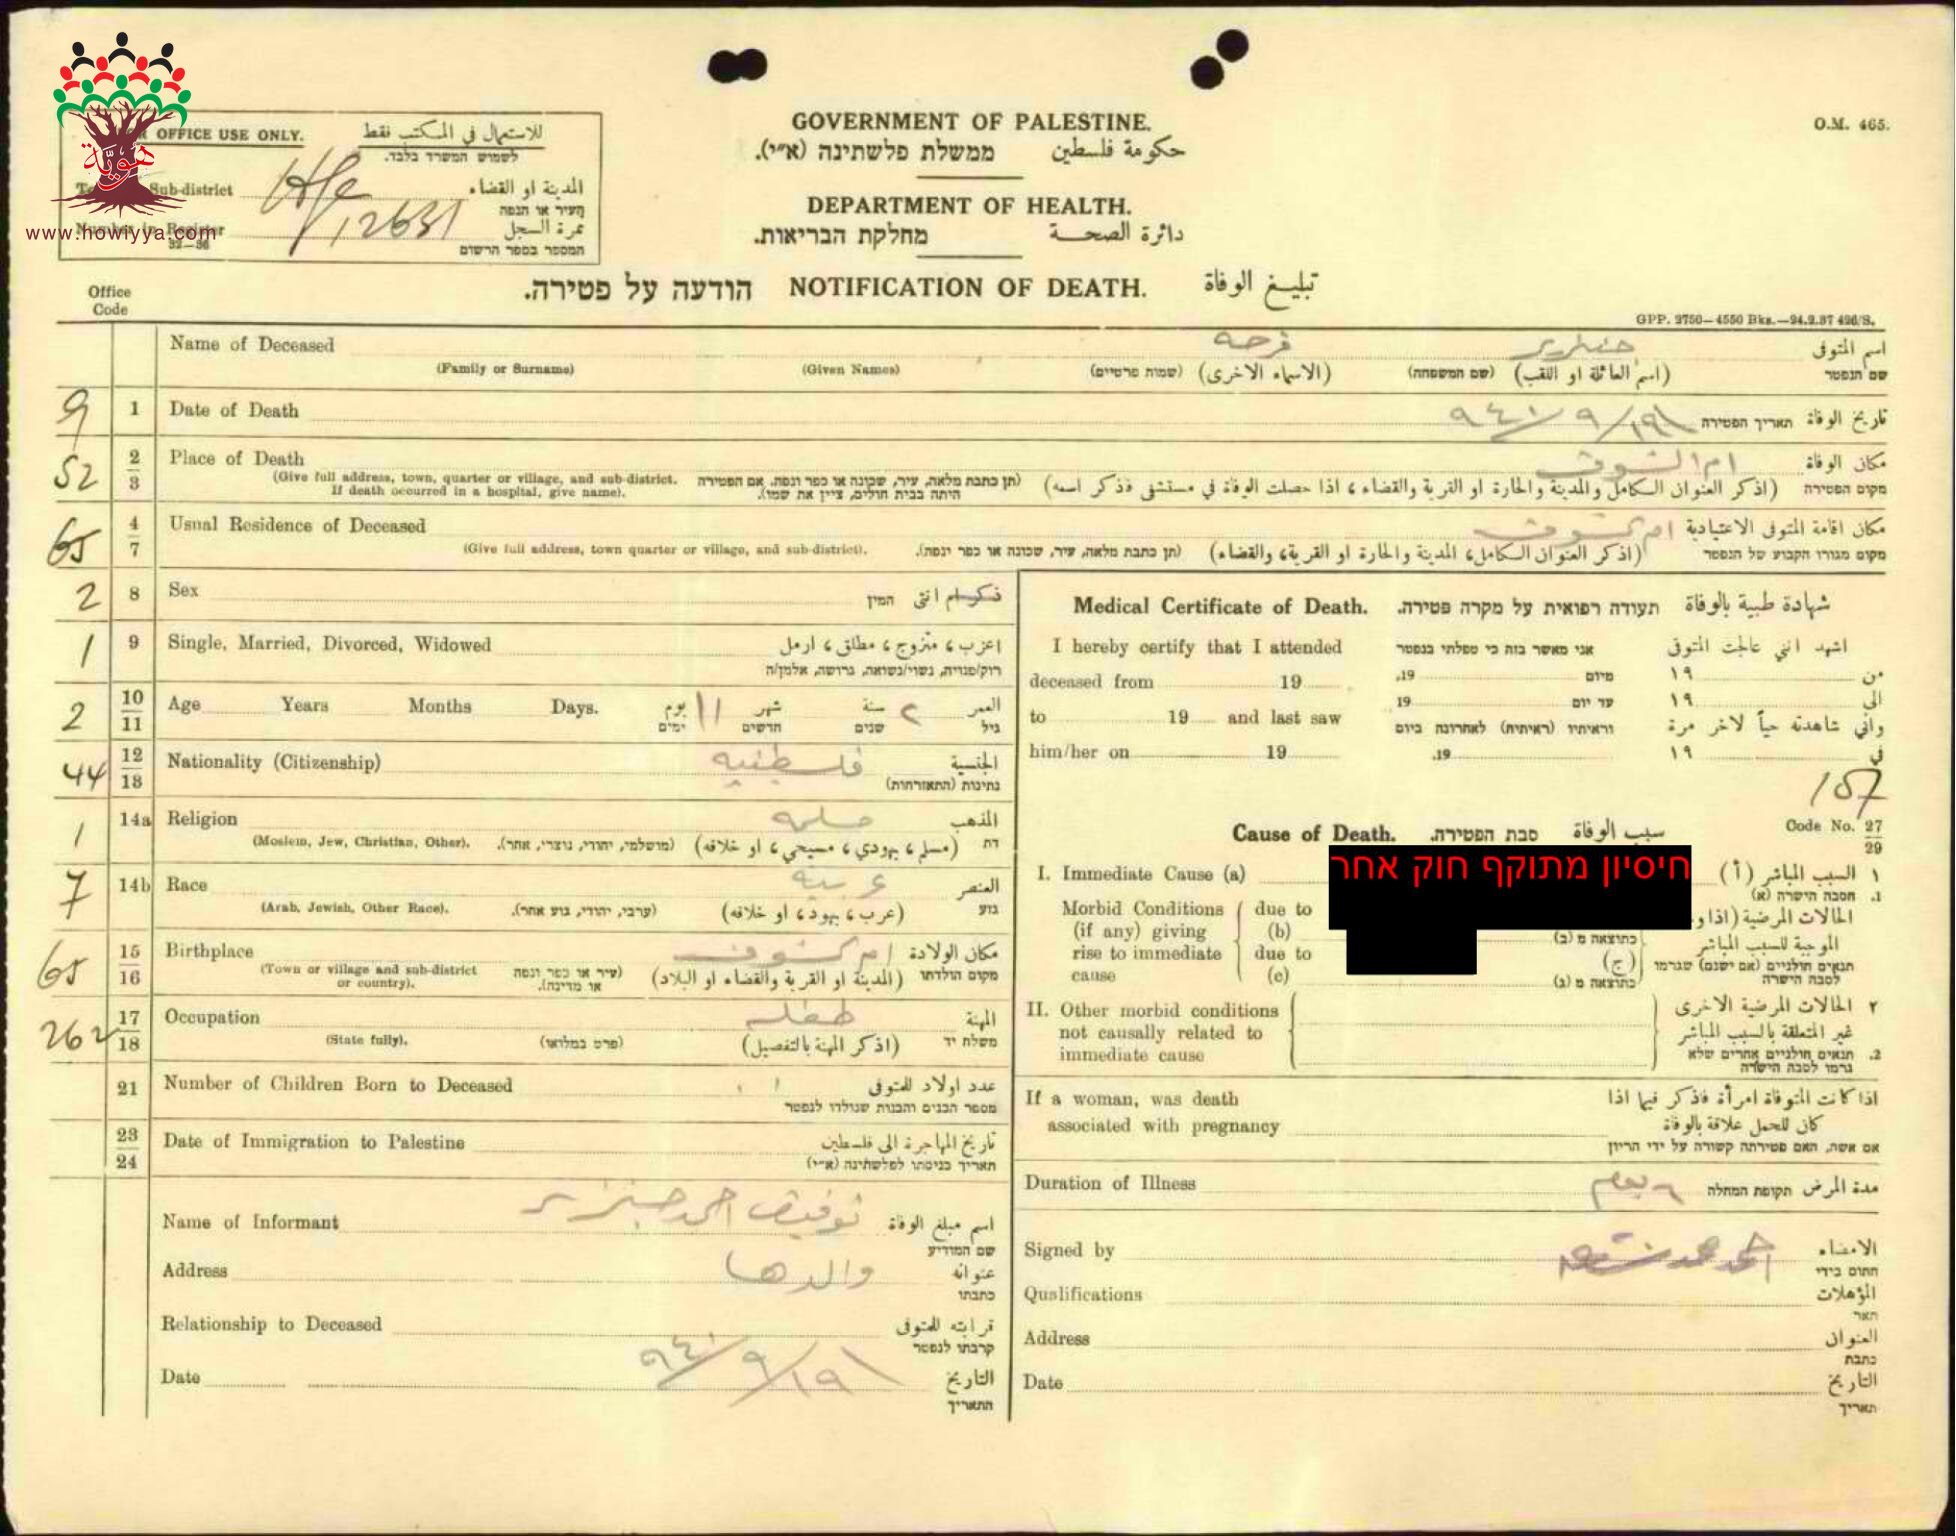 هويّة
www.howiyya.com
OR OFFICE USE ONLY. للاستعمال في المكتب فقط
לשמוש המשרד בלבד.
Sub-district Hfe المدينة او القضاء
העיר או הנפה
Number in Register 12631 نمرة السجل
32—36 המספר בספר הרשום
GOVERNMENT OF PALESTINE.
ממשלת פלשתינה (א״י). حكومة فلسطين
DEPARTMENT OF HEALTH.
מחלקת הבריאות. دائرة الصحة
O.M. 465.
הודעה על פטירה. NOTIFICATION OF DEATH. تبليغ الوفاة
Office
Code
GPP. 2750—4550 Bks.—24.2.37 426/S.
Name of Deceased فرحه اسم المتوفى
(Family or Surname) (Given Names) (שמות פרטיים) (الاسماء الاخرى) (שם המשפחה) (اسم العائلة او اللقب) שם הנפטר
9 1 Date of Death ١٩/٩/٩٤١ תאריך הפטירה تاريخ الوفاة
52 2 Place of Death ام الشوف مكان الوفاة
3 (Give full address, town, quarter or village, and sub-district. If death occurred in a hospital, give name). (תן כתבת מלאה, עיר, שכונה או כפר ונפה. אם הפטירה היתה בבית חולים, ציין את שמו). (اذكر العنوان الكامل والمدينة والحارة او القرية والقضاء، اذا حصلت الوفاة في مستشفى فذكر اسمه) מקום הפטירה
65 4 Usual Residence of Deceased ام الشوف مكان اقامة المتوفى الاعتيادية
7 (Give full address, town quarter or village, and sub-district). (תן כתבת מלאה, עיר, שכונה או כפר ונפה). (اذكر العنوان الكامل، المدينة والحارة او القرية، والقضاء) מקום מגורו הקבוע של הנפטר
2 8 Sex המין ذكر ام انثى
1 9 Single, Married, Divorced, Widowed اعزب، متزوج، مطلق، ارمل
רוק/פנויה, נשוי/נשואה, גרושה, אלמן/ה
2 10 Age Years Months Days. يوم ١١ شهر سنة ٢ العمر
11 ימים חדשים שנים גיל
44 12 Nationality (Citizenship) فلسطينيه الجنسية
13 נתינות (התאזרחות)
1 14a Religion مسلمه المذهب
(Moslem, Jew, Christian, Other). (מושלמי, יהודי, נוצרי, אחר). (مسلم، يهودي، مسيحي، او خلافه) דת
7 14b Race عربيه العنصر
(Arab, Jewish, Other Race). (ערבי, יהודי, גזע אחר). (عرب، يهود، او خلافه) גזע
65 15 Birthplace ام الشوف مكان الولادة
16 (Town or village and sub-district or country). (עיר או כפר ונפה או מדינה). (المدينة او القرية والقضاء او البلاد) מקום הולדתו
262 17 Occupation طفله المهنة
18 (State fully). (פרט במלואו) (اذكر المهنة بالتفصيل) משלח יד
21 Number of Children Born to Deceased عدد اولاد للمتوفى
מספר הבנים והבנות שנולדו לנפטר
23 Date of Immigration to Palestine تاريخ المهاجرة الى فلسطين
24 תאריך כניסתו לפלשתינה (א״י)
Name of Informant توفيق احمد اسم مبلغ الوفاة
שם המודיע
Address والدها عنوانه
כתבתו
Relationship to Deceased قرابته للمتوفى
קרבתו לנפטר
Date ١٩/٩/٩٤١ التاريخ
התאריך
Medical Certificate of Death. תעודה רפואית על מקרה פטירה. شهادة طبية بالوفاة
I hereby certify that I attended אני מאשר בזה כי טפלתי בנפטר اشهد انني عالجت المتوفى
deceased from 19 19, מיום ١٩ من
to 19 and last saw 19 עד יום ١٩ الى
וראיתיו (ראיתיה) לאחרונה ביום واني شاهدته حياً لاخر مرة
him/her on 19 19. ١٩ في
187
Cause of Death. סבת הפטירה. سبب الوفاة Code No. 27
29
I. Immediate Cause (a) חיסיון מתוקף חוק אחר السبب المباشر (أ) ١
1. הסבה הישרה (א)
Morbid Conditions due to الحالات المرضية (اذا و
(if any) giving (b) כתוצאה מ (ב) الموجبة للسبب المباشر
rise to immediate due to (ج) תנאים חולניים (אם ישנם) שגרמו
cause (c) כתוצאה מ (ג) לסבה הישרה
II. Other morbid conditions الحالات المرضية الاخرى ٢
not causally related to غير المتعلقة بالسبب المباشر
immediate cause 2. תנאים חולניים אחרים שלא
גרמו לסבה הישרה
If a woman, was death اذا كانت المتوفاة امرأة فذكر فيما اذا
associated with pregnancy كان للحمل علاقة بالوفاة
אם אשה, האם פטירתה קשורה על ידי הריון
Duration of Illness תקופת המחלה مدة المرض
Signed by الامضاء
חתום בידי
Qualifications المؤهلات
תאר
Address العنوان
כתבת
Date التاريخ
תאריך